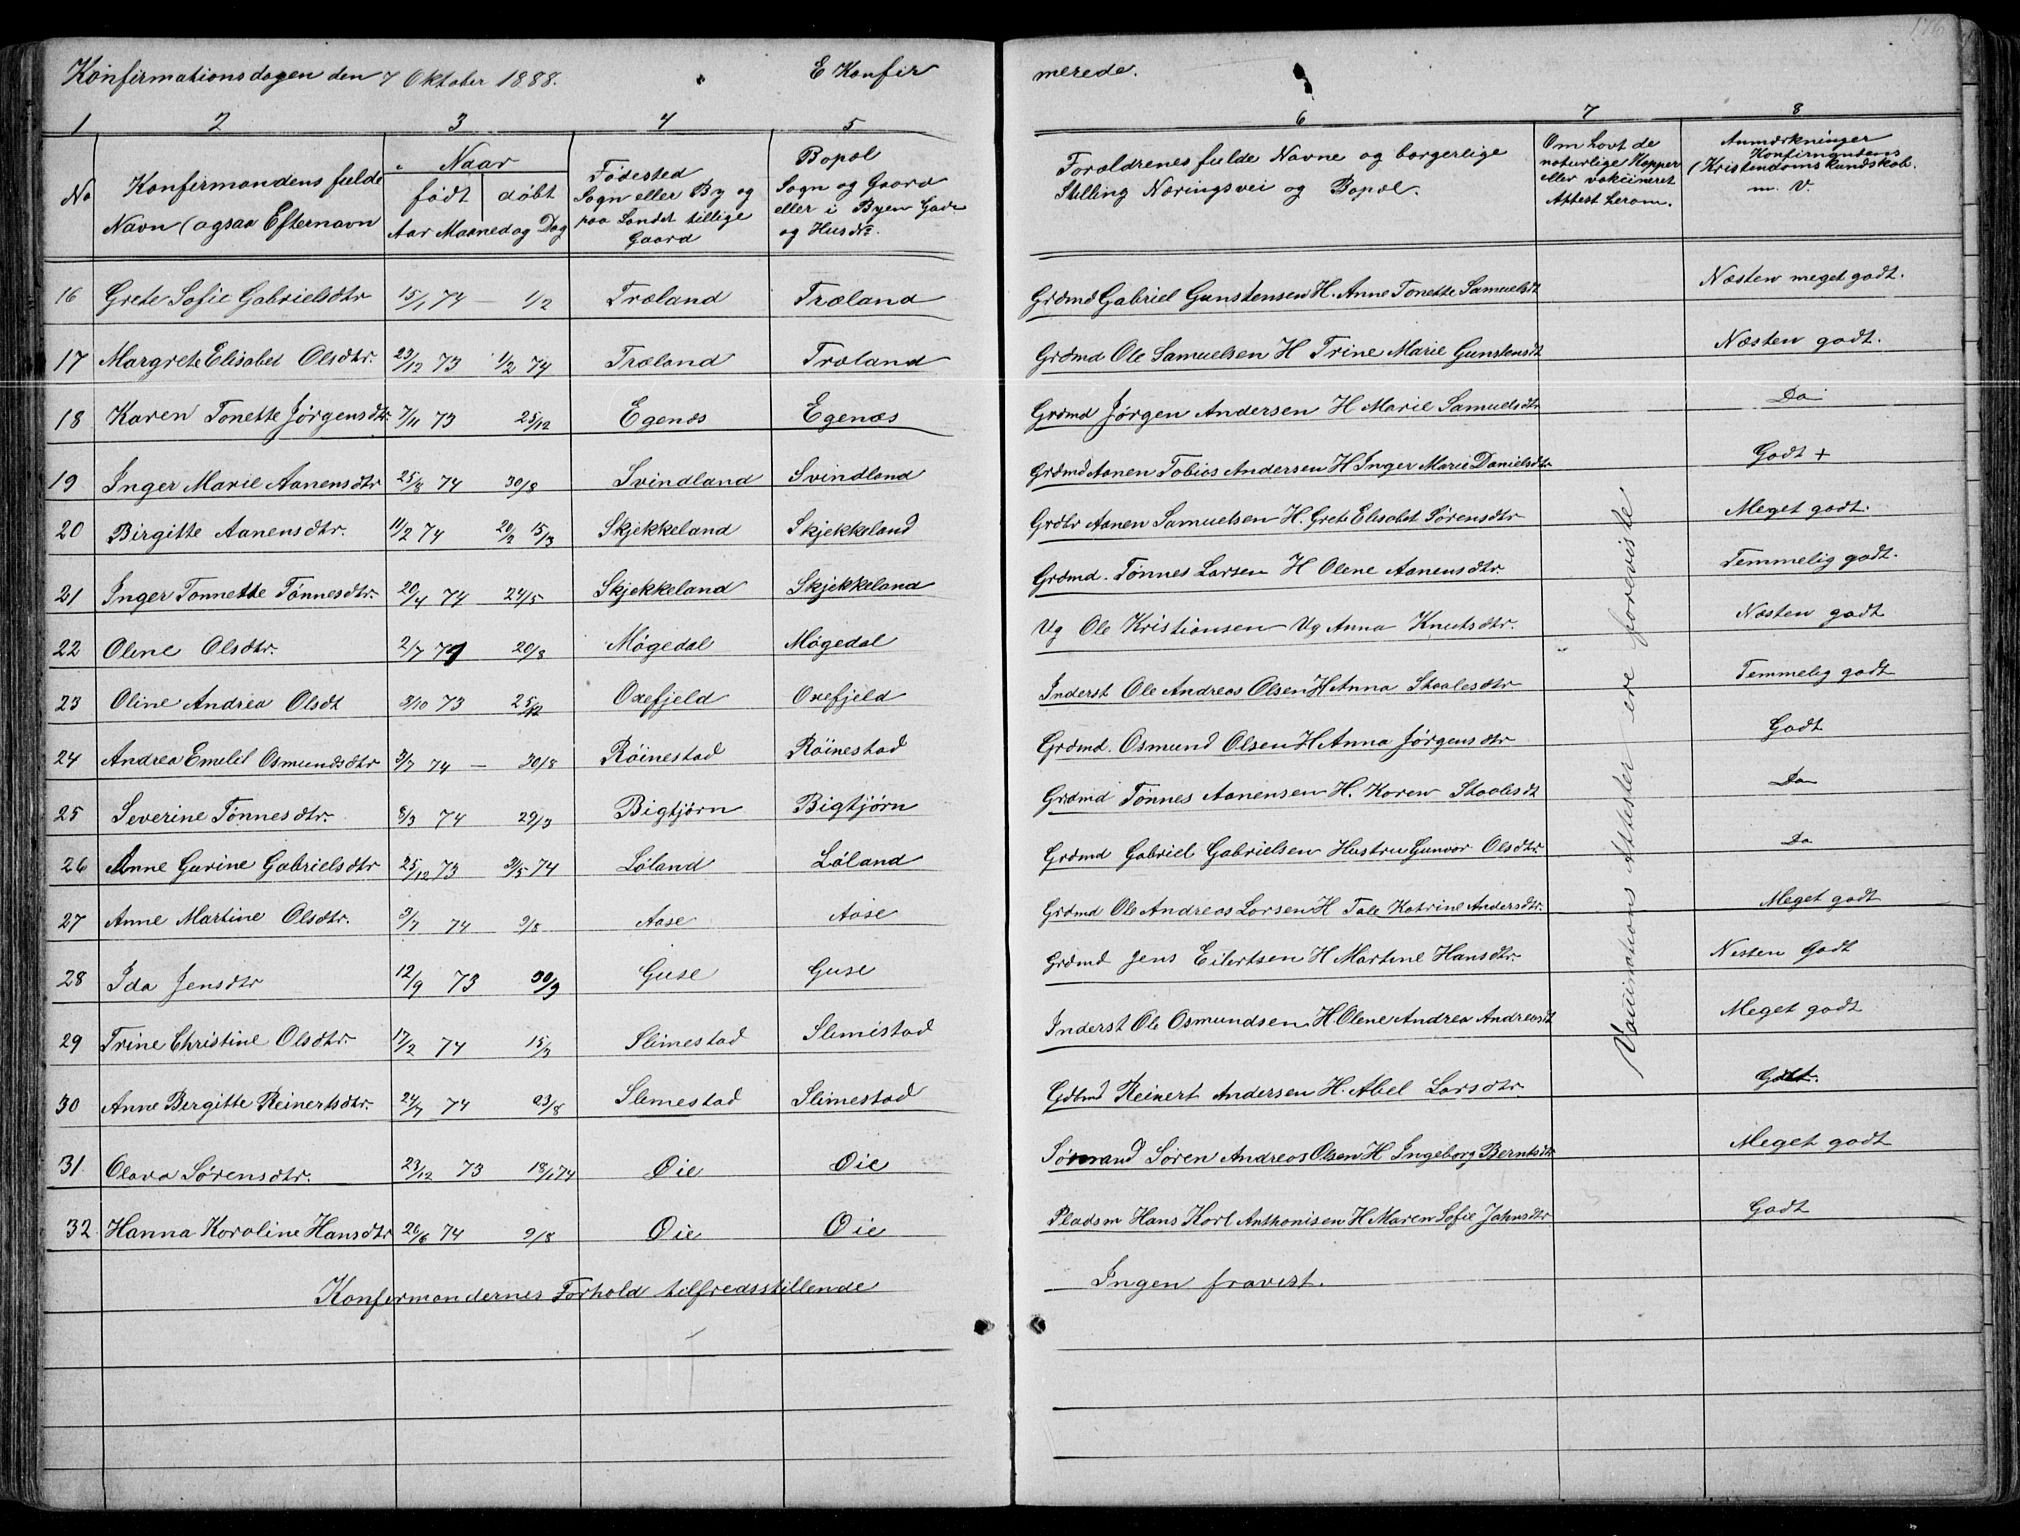 176
Konfirmationsdagen den 7 Oktober 1888. E Konfirmerede.
1 2 3 4 5 6 7 8
No
Konfirmandens fulde
Navn (ogsaa Efternavn
Naar
født døbt
Aar Maaned og Dag
Fødested
Sogn eller By og
paa Landet tillige
Gaard
Bopæl
Sogn og Gaard
eller i Byen Gade
og Hus №.
Forældrenes fulde Navne og borgerlige
Stilling Næringsvei og Bopæl.
Om havt de
naturlige Kopper
eller vakcineret
Attest herom.
Anmærkninger
Konfirmandens
(Kristendomskundskab.
m. V.
16 Grete Sofie Gabrielsdtr 15/1 74 — 1/2 Træland Træland Grdmd Gabriel Gunstensen H. Anne Tonette Samuelsdt Næsten meget godt.
17 Margrete Elisabet Olsdtr. 23/12 73 1/2 74 Træland Træland Grdmd Ole Samuelsen H Trine Marie Gunstensdt Næsten godt.
18 Karen Tonette Jørgensdtr. 7/11 73 25/12 Egenæs Egenæs Grdmd Jørgen Andersen H Marie Samuelsdtr Do
19 Inger Marie Aanensdtr 25/8 74 30/8 Svindland Svindland Grdmd Aanen Tobias Andersen H Inger Marie Danielsdtr Godt +
20 Birgitte Aanensdtr. 11/2 74 20/2 15/3 Skjekkeland Skjekkeland Grdbr Aanen Samuelsen H. Grete Elisabet Sørensdtr Meget godt.
21 Inger Tonnette Tønnesdtr. 20/4 74 24/5 Skjekkeland Skjekkeland Grdmd. Tønnes Larsen H Olene Aanensdtr. Temmelig godt.
22 Olene Olsdtr. 2/7 74 20/8 Møgedal Møgedal Ug Ole Kristiansen Ug Anna Knutsdtr. Næsten godt
23 Oline Andrea Olsdt 3/10 73 25/12 Oxefjeld Oxefjeld Inderst Ole Andreas Olsen H Anna Staalesdtr Temmelig godt
24 Andrea Emelel Osmundsdtr 3/7 74 — 30/8 Röinestad Röinestad Grdmd. Osmund Olsen H Anna Jørgensdtr Godt
25 Severine Tønnesdtr. 8/3 74 29/3 Bigtjørn Bigtjørn Grdmd Tönnes Aanensen H. Karen Staalesdt Do
26 Anne Gurine Gabrielsdtr 25/12 73 3/5 74 Løland Løland Grdmd Gabriel Gabrielsen Hustru Gunvor Olsdtr. Do
27 Anne Martine Olsdtr. 3/7 74 9/8 Aase Aase Grdmd Ole Andreas Larsen H Tale Katrine Andersdtr. Meget godt
28 Ida Jensdtr 12/9 73 30/9 Guse Guse Grdmd Jens Eilertsen H Martine Hansdtr. Nesten Godt
29 Trine Christine Olsdtr. 17/2 74 15/3 Slimestad Slimestad Inderst Ole Osmundsen H. Olene Andrea Andreasdt Meget godt
30 Anne Bergitte Reinertsdtr. 24/7 74 23/8 Slimestad Slimestad Gdbmd Reinert Andersen H. Abel Larsdtr. Godt.
31. Olava Sørensdtr. 23/12 73 18/1 74 Øie Øie Sømand Sören Andreas Olsen H Ingeborg Berntsdtr Meget godt
32 Hanna Karoline Hansdtr 26/6 74 9/8 Øie Øie Pladsm Hans Karl Anthonisen H Maren Sofie Jahnsdtr Godt
Vaccinations Attester ere foreviste
Konfirmandernes Forhold tilfredsstillende Ingen fravist.